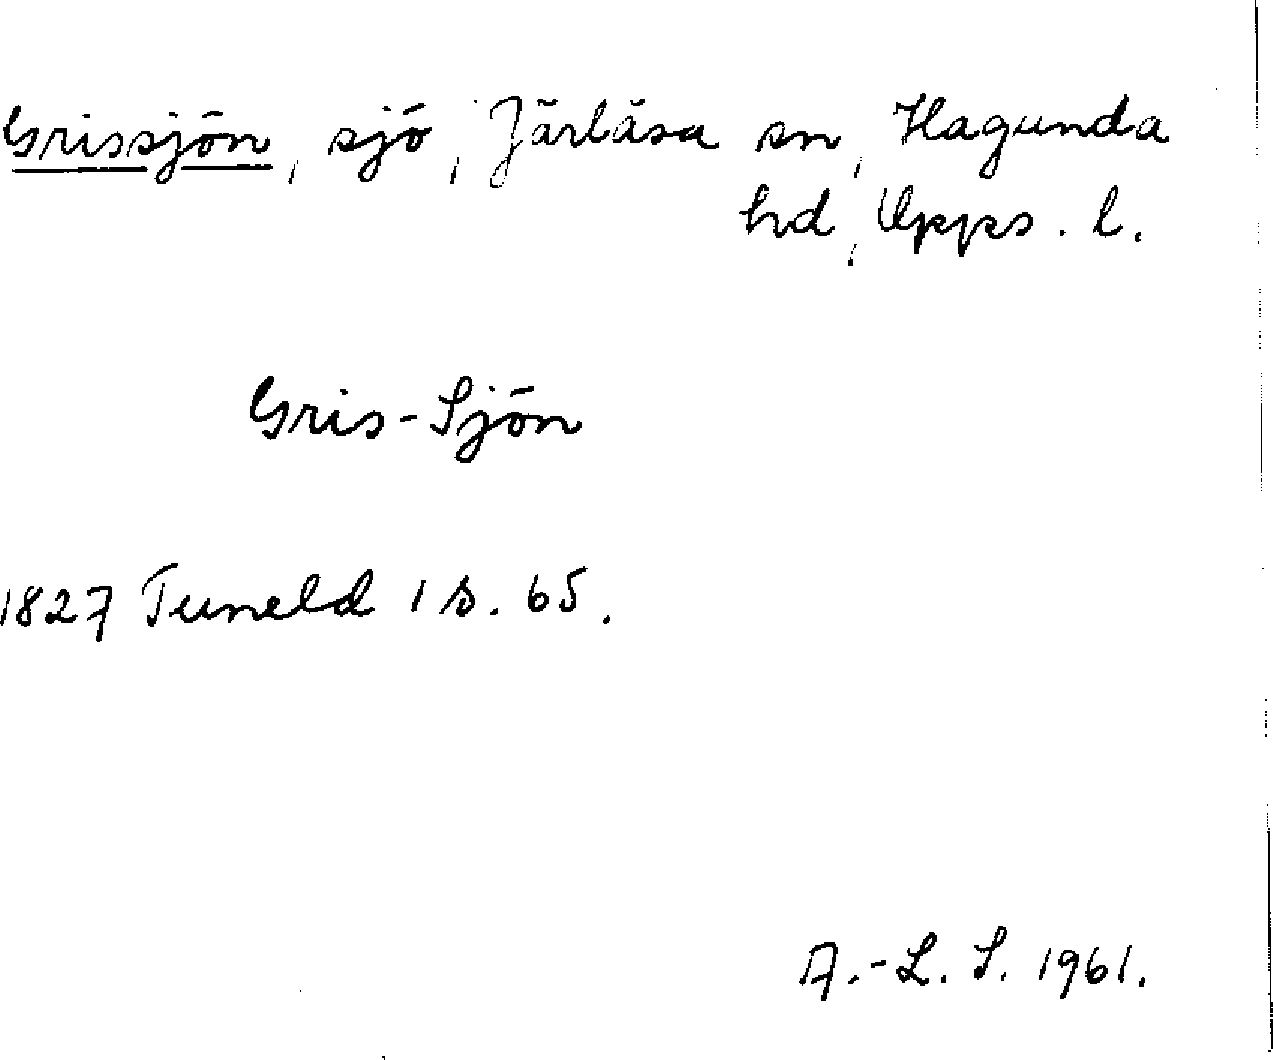 Grissjön, sjö, Järlåsa sn, Hagunda
hd, Upps. l.
Gris-Sjön
1827 Tuneld 1 s. 65.
A.-L. S. 1961.